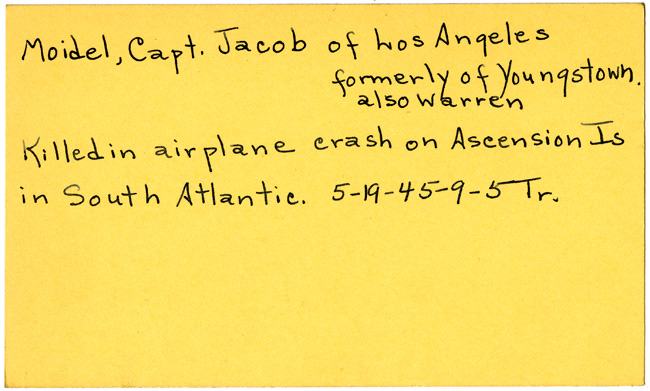 Moidel, Capt. Jacob of Los Angeles
formerly of Youngstown.
also Warren
Killed in airplane crash on Ascension Is
in South Atlantic. 5-19-45-9-5 Tr.